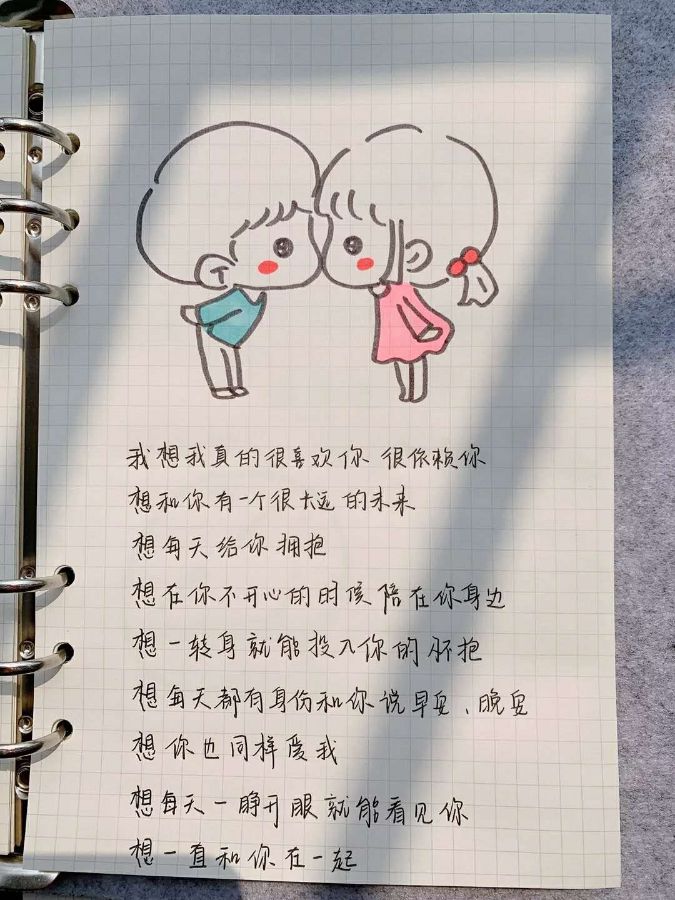 我想我真的很喜欢你 很依赖你
想和你有一个很长远的未来
想每天给你拥抱
想在你不开心的时候陪在你身边
想一转身就能投入你的怀抱
想每天都有身份和你说早安、晚安
想你也同样爱我
想每天一睁开眼就能看见你
想一直和你在一起